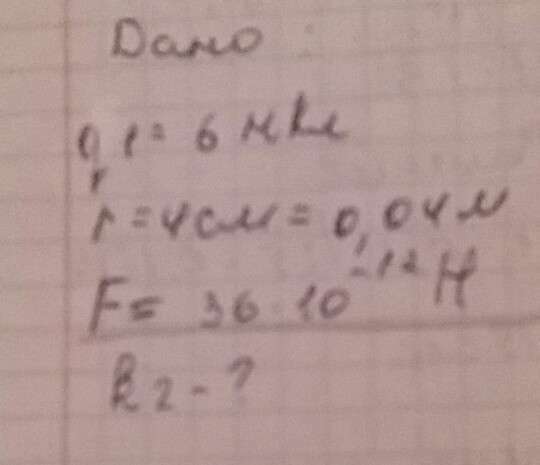 Дано
q1 = 6 мкл
r = 4 см = 0,04 м
F = 36 · 10⁻¹² Н
k2 - ?